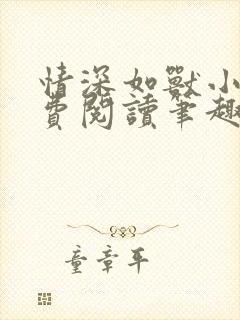 情深如獸小
費閱讀筆趣
童章平